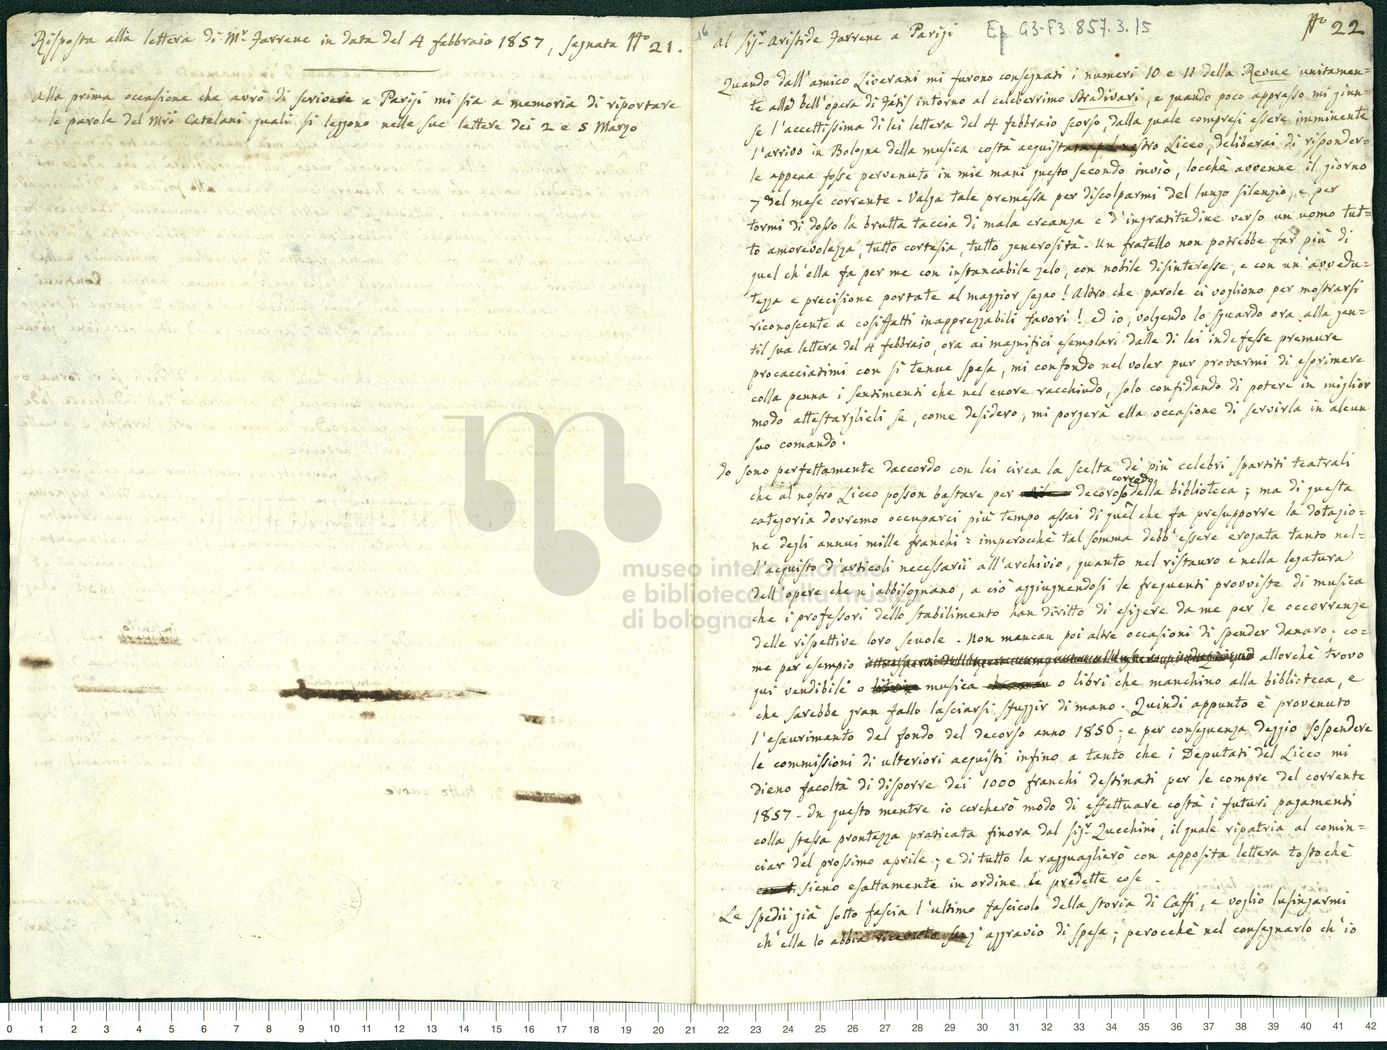 Risposta alla lettera di Mr. Farrenc in data del 4 febbraio 1857, segnata No 21.
Alla prima occasione che avrò di scrivere a Parigi mi sia a memoria di riportare
le parole del Mro Catelani quali si leggono nelle sue lettere dei 2 e 5 Marzo
16
Al Sigr. Aristide Farrenc a Parigi
Ep. G3-F3.857.3.15
No 22
Quando dall'amico Liverani mi furono consegnati i numeri 10 e 11 della Revue unitamen=
te all' dell'opera di Fétis intorno al celeberrimo Stradivari, e quando poco appresso mi giun=
se l'accettissima di lei lettera del 4 febbraio scorso, dalla quale compresi essere imminente
l'arrivo in Bologna della musica costà acquistata pel nostro Liceo, deliberai di risponder=
le appena fosse pervenuto in mie mani questo secondo invio, locchè avvenne il giorno
7 del mese corrente - Valga tale premessa per discolparmi del lungo silenzio, e per
tormi di dosso la brutta taccia di mala creanza e d'ingratitudine verso un uomo tut=
to amorevolezza, tutto cortesia, tutto generosità - Un fratello non potrebbe far più di
quel ch'ella fa per me con instancabile zelo, con nobile disinteresse, e con un'avvedu=
tezza e precisione portate al maggior segno! Altro che parole ci vogliono per mostrarsi
riconoscente a cosiffatti inapprezzabili favori! ed io, volgendo lo sguardo ora alla gen=
til sua lettera del 4 febbraio, ora ai magnifici esemplari dalle di lei indefesse premure
procacciatimi con sì tenue spesa, mi confondo nel voler pur provarmi di esprimere
colla penna i sentimenti che nel cuore racchiudo, solo confidando di potere in miglior
modo attestarglieli se, come desidero, mi porgerà ella occasione di servirla in alcun
suo comando.
Io sono perfettamente daccordo con lei circa la scelta de' più celebri spartiti teatrali
che al nostro Liceo posson bastare per decoroso corredo della biblioteca; ma di questa
categoria dovremo occuparci più tempo assai di quel che fa presupporre la dotazio=
ne degli annui mille franchi: imperocchè tal somma debb'essere erogata tanto nel=
l'acquisto d'articoli necessarii all'archivio, quanto nel ristauro e nella legatura
dell'opere che n'abbisognano, a ciò aggiugnendosi le frequenti provviste di musica
che i professori dello stabilimento han diritto di esigere da me per le occorrenze
delle rispettive loro scuole. Non mancan poi altre occasioni di spender danaro; co=
me per esempio allorchè trovo
qui vendibile o musica o libri che manchino alla biblioteca, e
che sarebbe gran fallo lasciarsi sfuggir di mano. Quindi appunto è provenuto
l'esaurimento del fondo del decorso anno 1856; e per conseguenza deggio sospendere
le commissioni di ulteriori acquisti infino a tanto che i Deputati del Liceo mi
dieno facoltà di disporre dei 1000 franchi destinati per le compre del corrente
1857 - In questo mentre io cercherò modo di effettuare costà i futuri pagamenti
colla stessa prontezza praticata finora dal Sigr. Zucchini, il quale ripatria al comin=
ciar del prossimo aprile; e di tutto la ragguaglierò con apposita lettera tostochè
sieno esattamente in ordine le predette cose.
Le spedii già sotto fascia l'ultimo fascicolo della storia di Caffi, e voglio lusingarmi
ch'ella lo abbia ricevuto senz'aggravio di spesa; perocchè nel consegnarlo ch'io
museo internazionale
e biblioteca della musica
di bologna
0 1 2 3 4 5 6 7 8 9 10 11 12 13 14 15 16 17 18 19 20 21 22 23 24 25 26 27 28 29 30 31 32 33 34 35 36 37 38 39 40 41 42